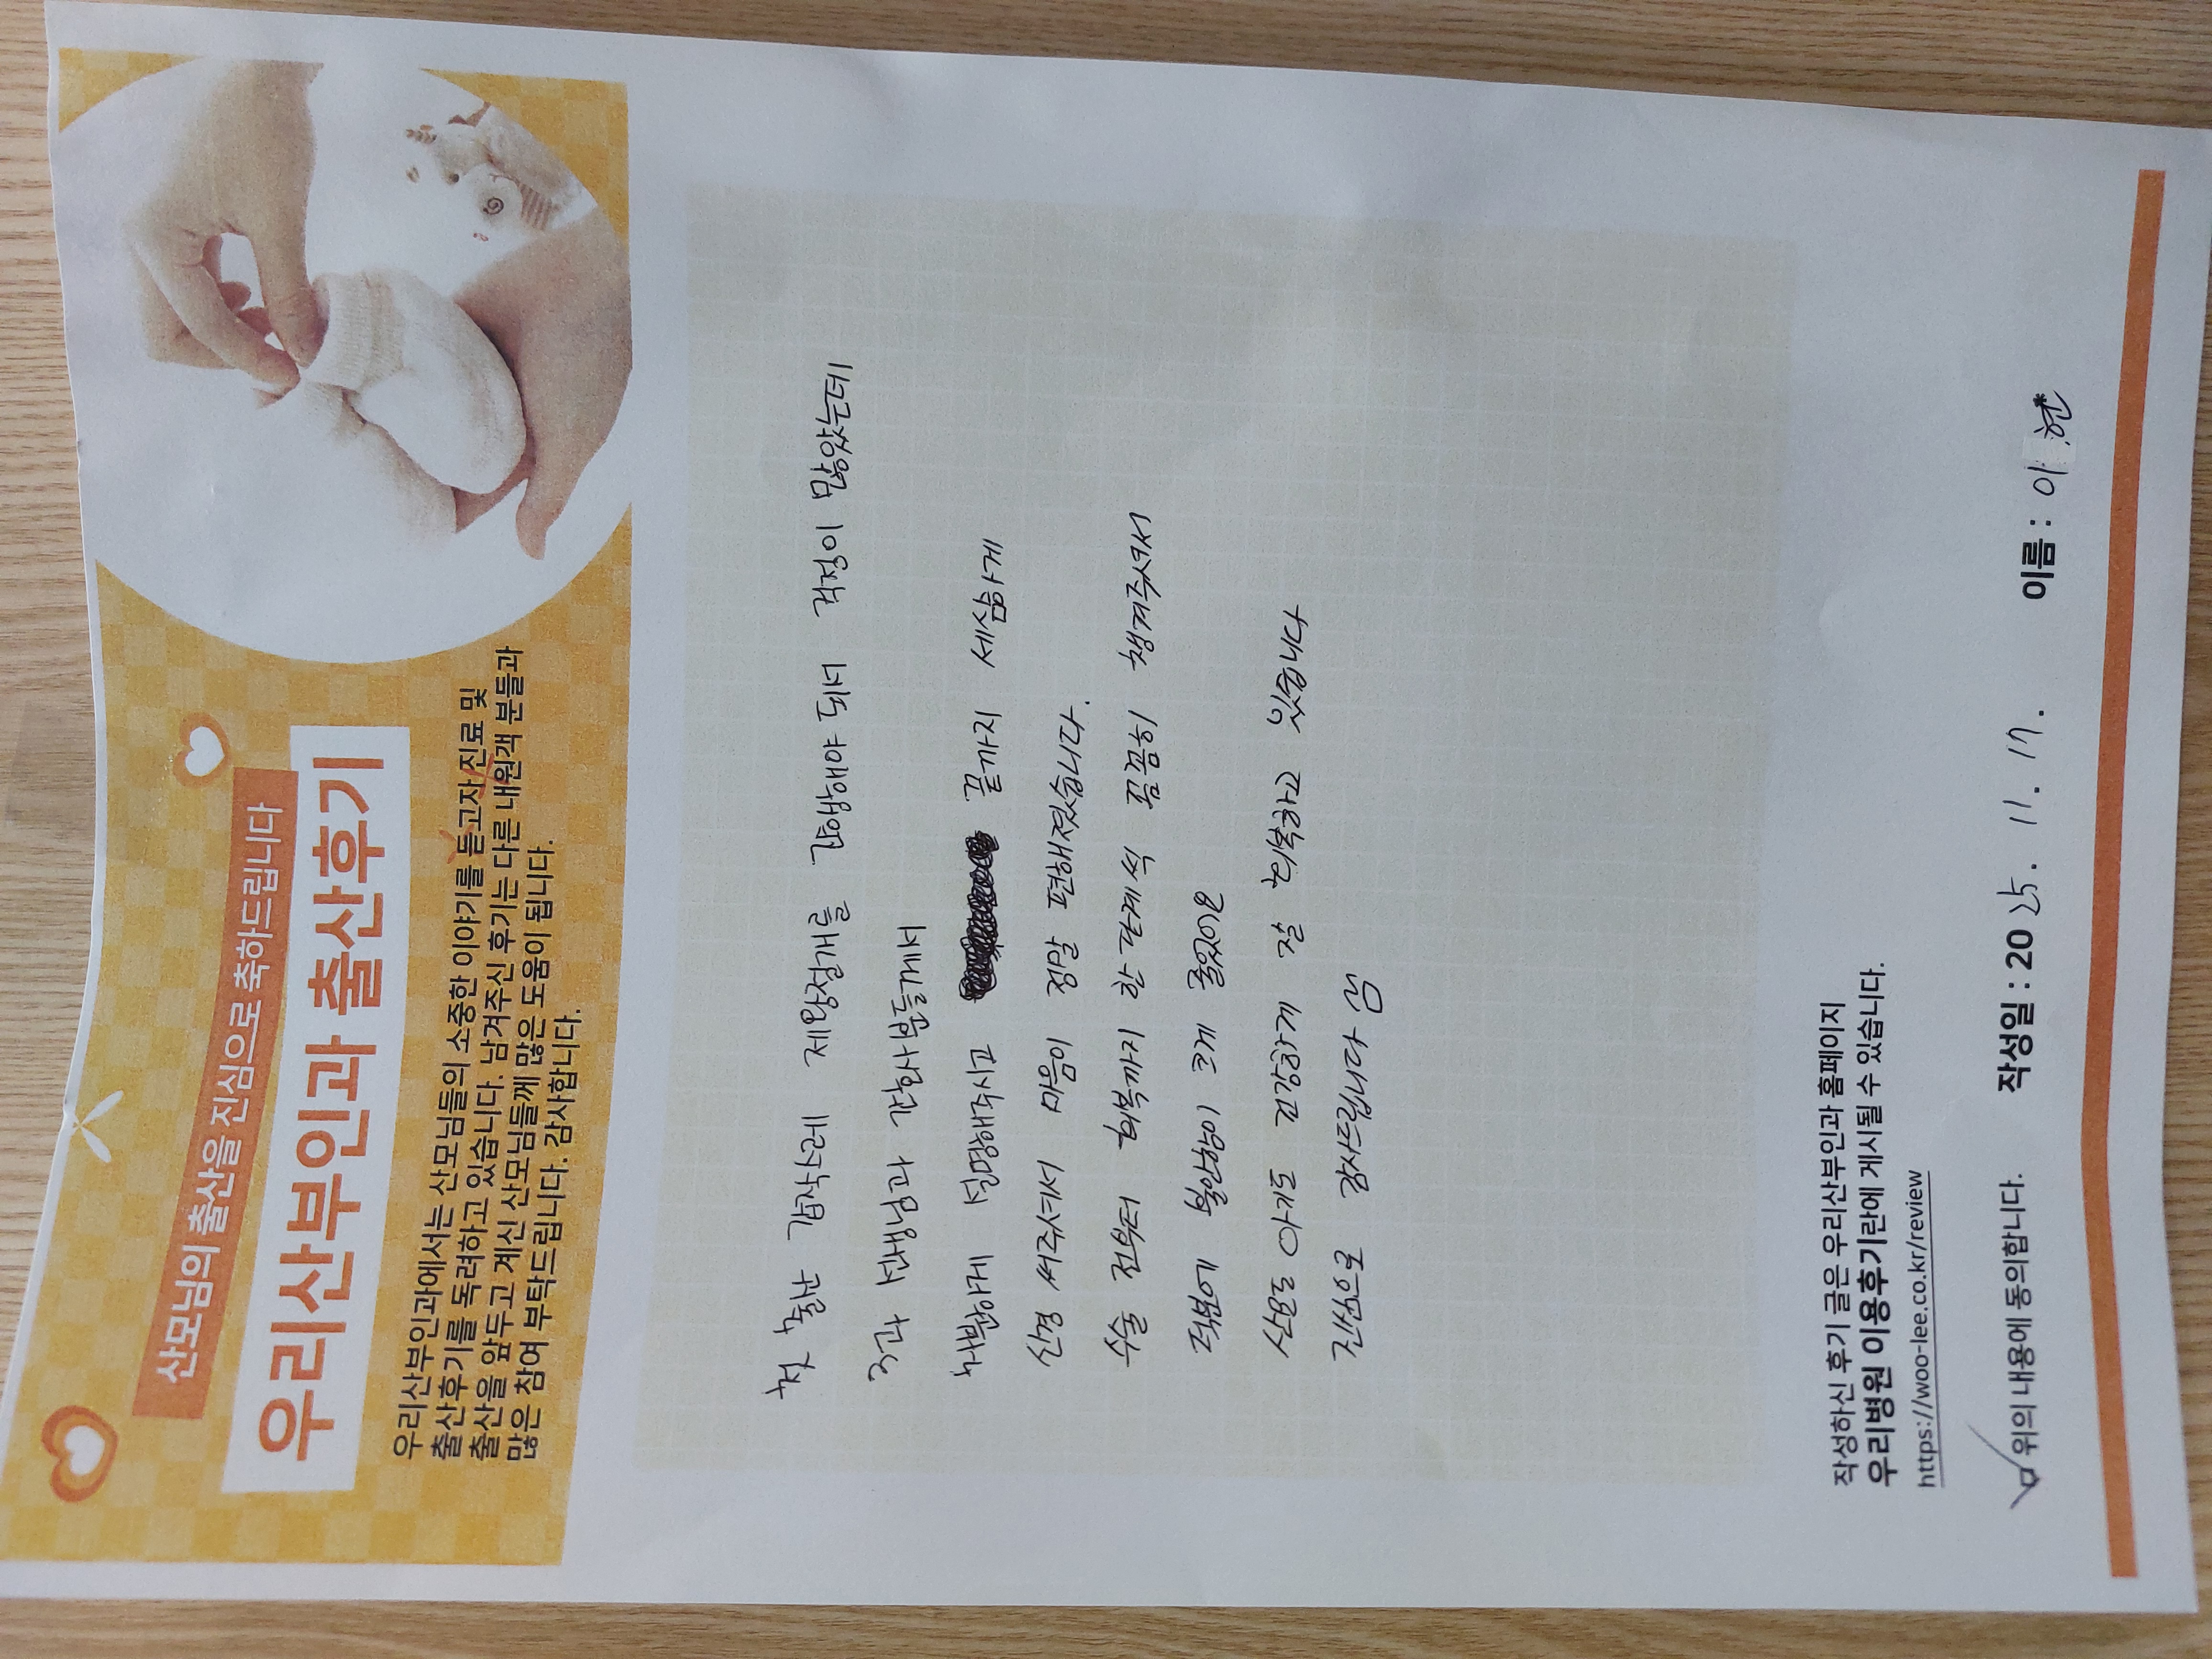 산모님의 출산을 진심으로 축하드립니다
우리산부인과 출산후기
우리산부인과에서는 산모님들의 소중한 이야기를 듣고자 진료 및
출산후기를 독려하고 있습니다. 남겨주신 후기는 다른 내원객 분들과
출산을 앞두고 계신 산모님들께 많은 도움이 됩니다.
많은 참여 부탁드립니다. 감사합니다.
첫 출산 갑작스레 제왕절개를 진행해야 되서 걱정이 많았는데
3과 선생님과 간호사분들께서
차분하게 설명해주시고 끝까지 세심하게
신경 써주셔서 마음이 정말 편해졌습니다.
수술 전부터 회복까지 한 단계씩 꼼꼼히 챙겨주셔서
덕분에 불안함이 크게 줄었어요
산모도 아기도 건강하게 잘 회복하고 있습니다
진심으로 감사드립니다
작성하신 후기 글은 우리산부인과 홈페이지
우리병원 이용후기란에 게시될 수 있습니다.
https://woo-lee.co.kr/review
위의 내용에 동의합니다. 작성일 : 2025. 11. 17. 이름 : 이 현*